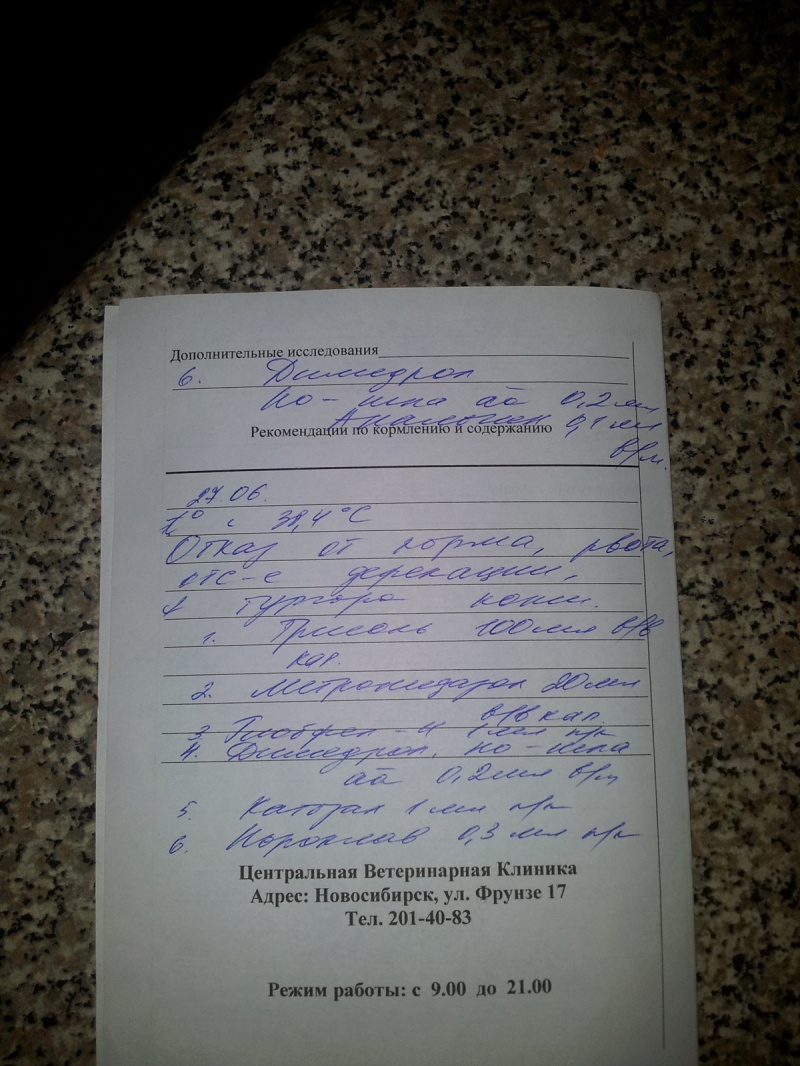 Дополнительные исследования
6. Димедрол
Но-шпа аа 0,2 мл
Анальгин 0,1 мл
Рекомендации по кормлению и содержанию
в/м.
27.06.
t° с 38,4°C
Отказ от корма, рвота,
отс-е дефекации,
↓ тургора кожи.
1. Трисоль 100 мл в/в
кап.
2. Метронидазол 20 мл
в/в кап.
3. 1 мл п/к
4. Димедрол, но-шпа
аа 0,2 мл в/м
5. Катозал 1 мл п/к
6. 0,3 мл п/к
Центральная Ветеринарная Клиника
Адрес: Новосибирск, ул. Фрунзе 17
Тел. 201-40-83
Режим работы: с 9.00 до 21.00